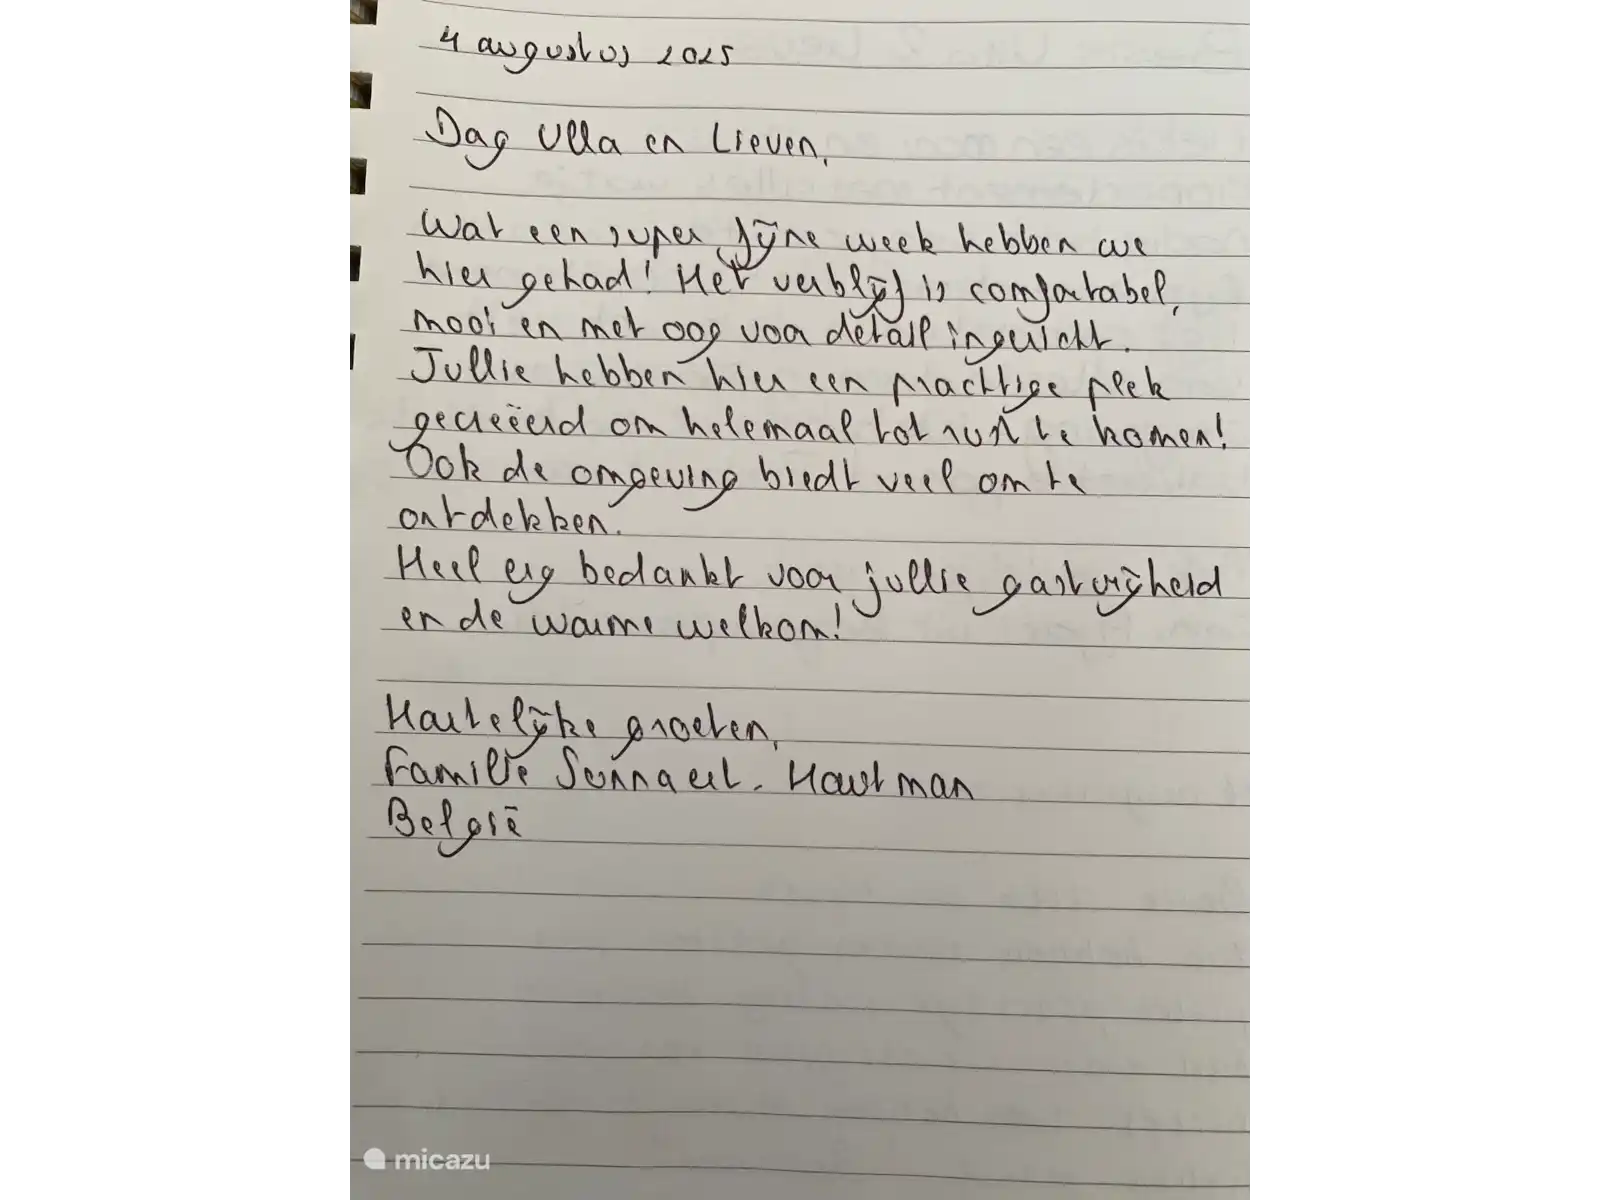 4 augustus 2025
Dag Ulla en Lieven,
Wat een super fijne week hebben we
hier gehad! Het verblijf is comfortabel,
mooi en met oog voor detail ingericht.
Jullie hebben hier een prachtige plek
gecreëerd om helemaal tot rust te komen!
Ook de omgeving biedt veel om te
ontdekken.
Heel erg bedankt voor jullie gastvrijheid
en de warme welkom!
Hartelijke groeten,
Familie
België
micazu